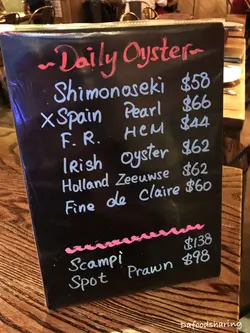 ~Daily Oyster~
Shimonoseki $58
xSpain Pearl $66
F. R. HCM $44
IRish Oyster $62
Holland Zeeuwse $62
Fine de Claire $60
Scampi $138
Spot Prawn $98
bafoodsharing